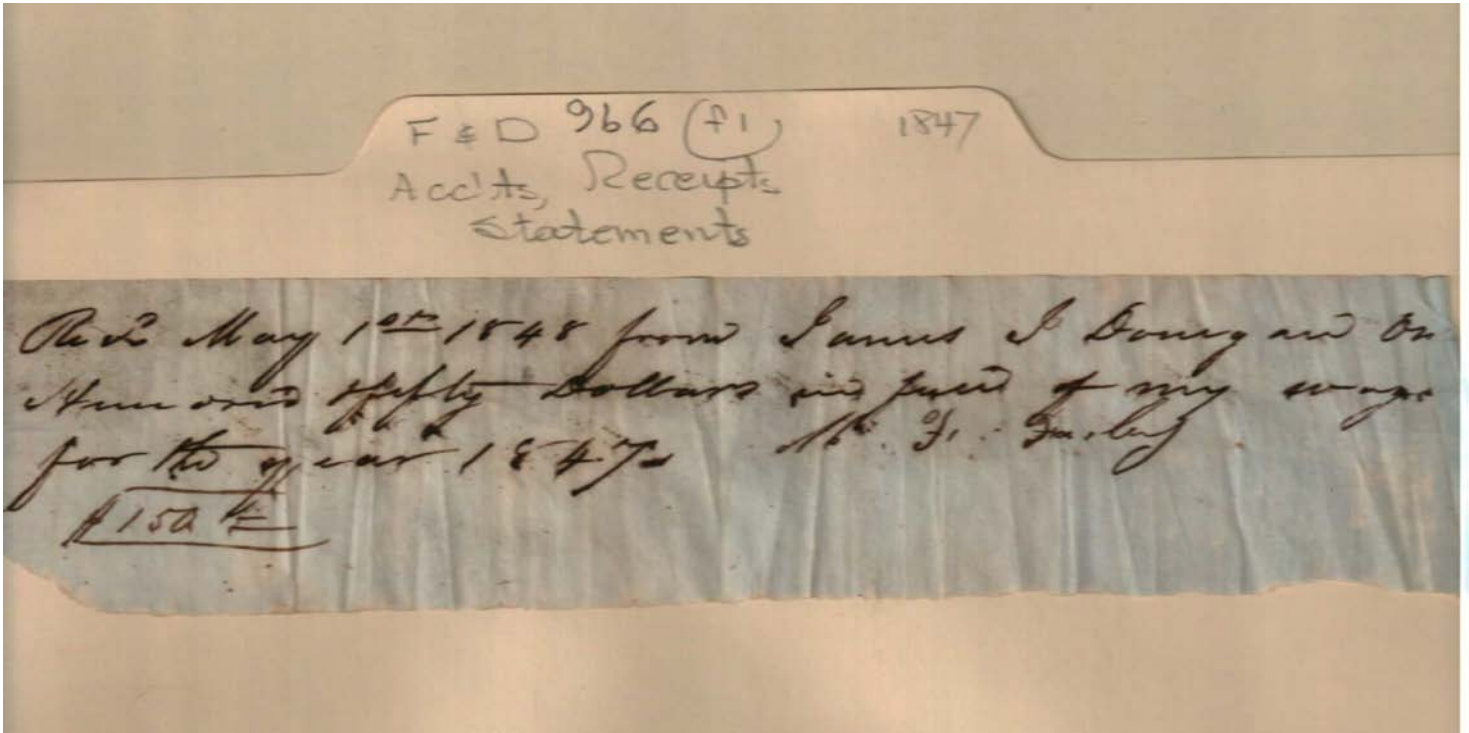 F & D 966 (f1) 1847
Acc'ts, Receipts
Statements
Recd May 1st 1848 from James J Donegan On
Hundred & fifty Dollars in full of my wage
for the year 1847
$150